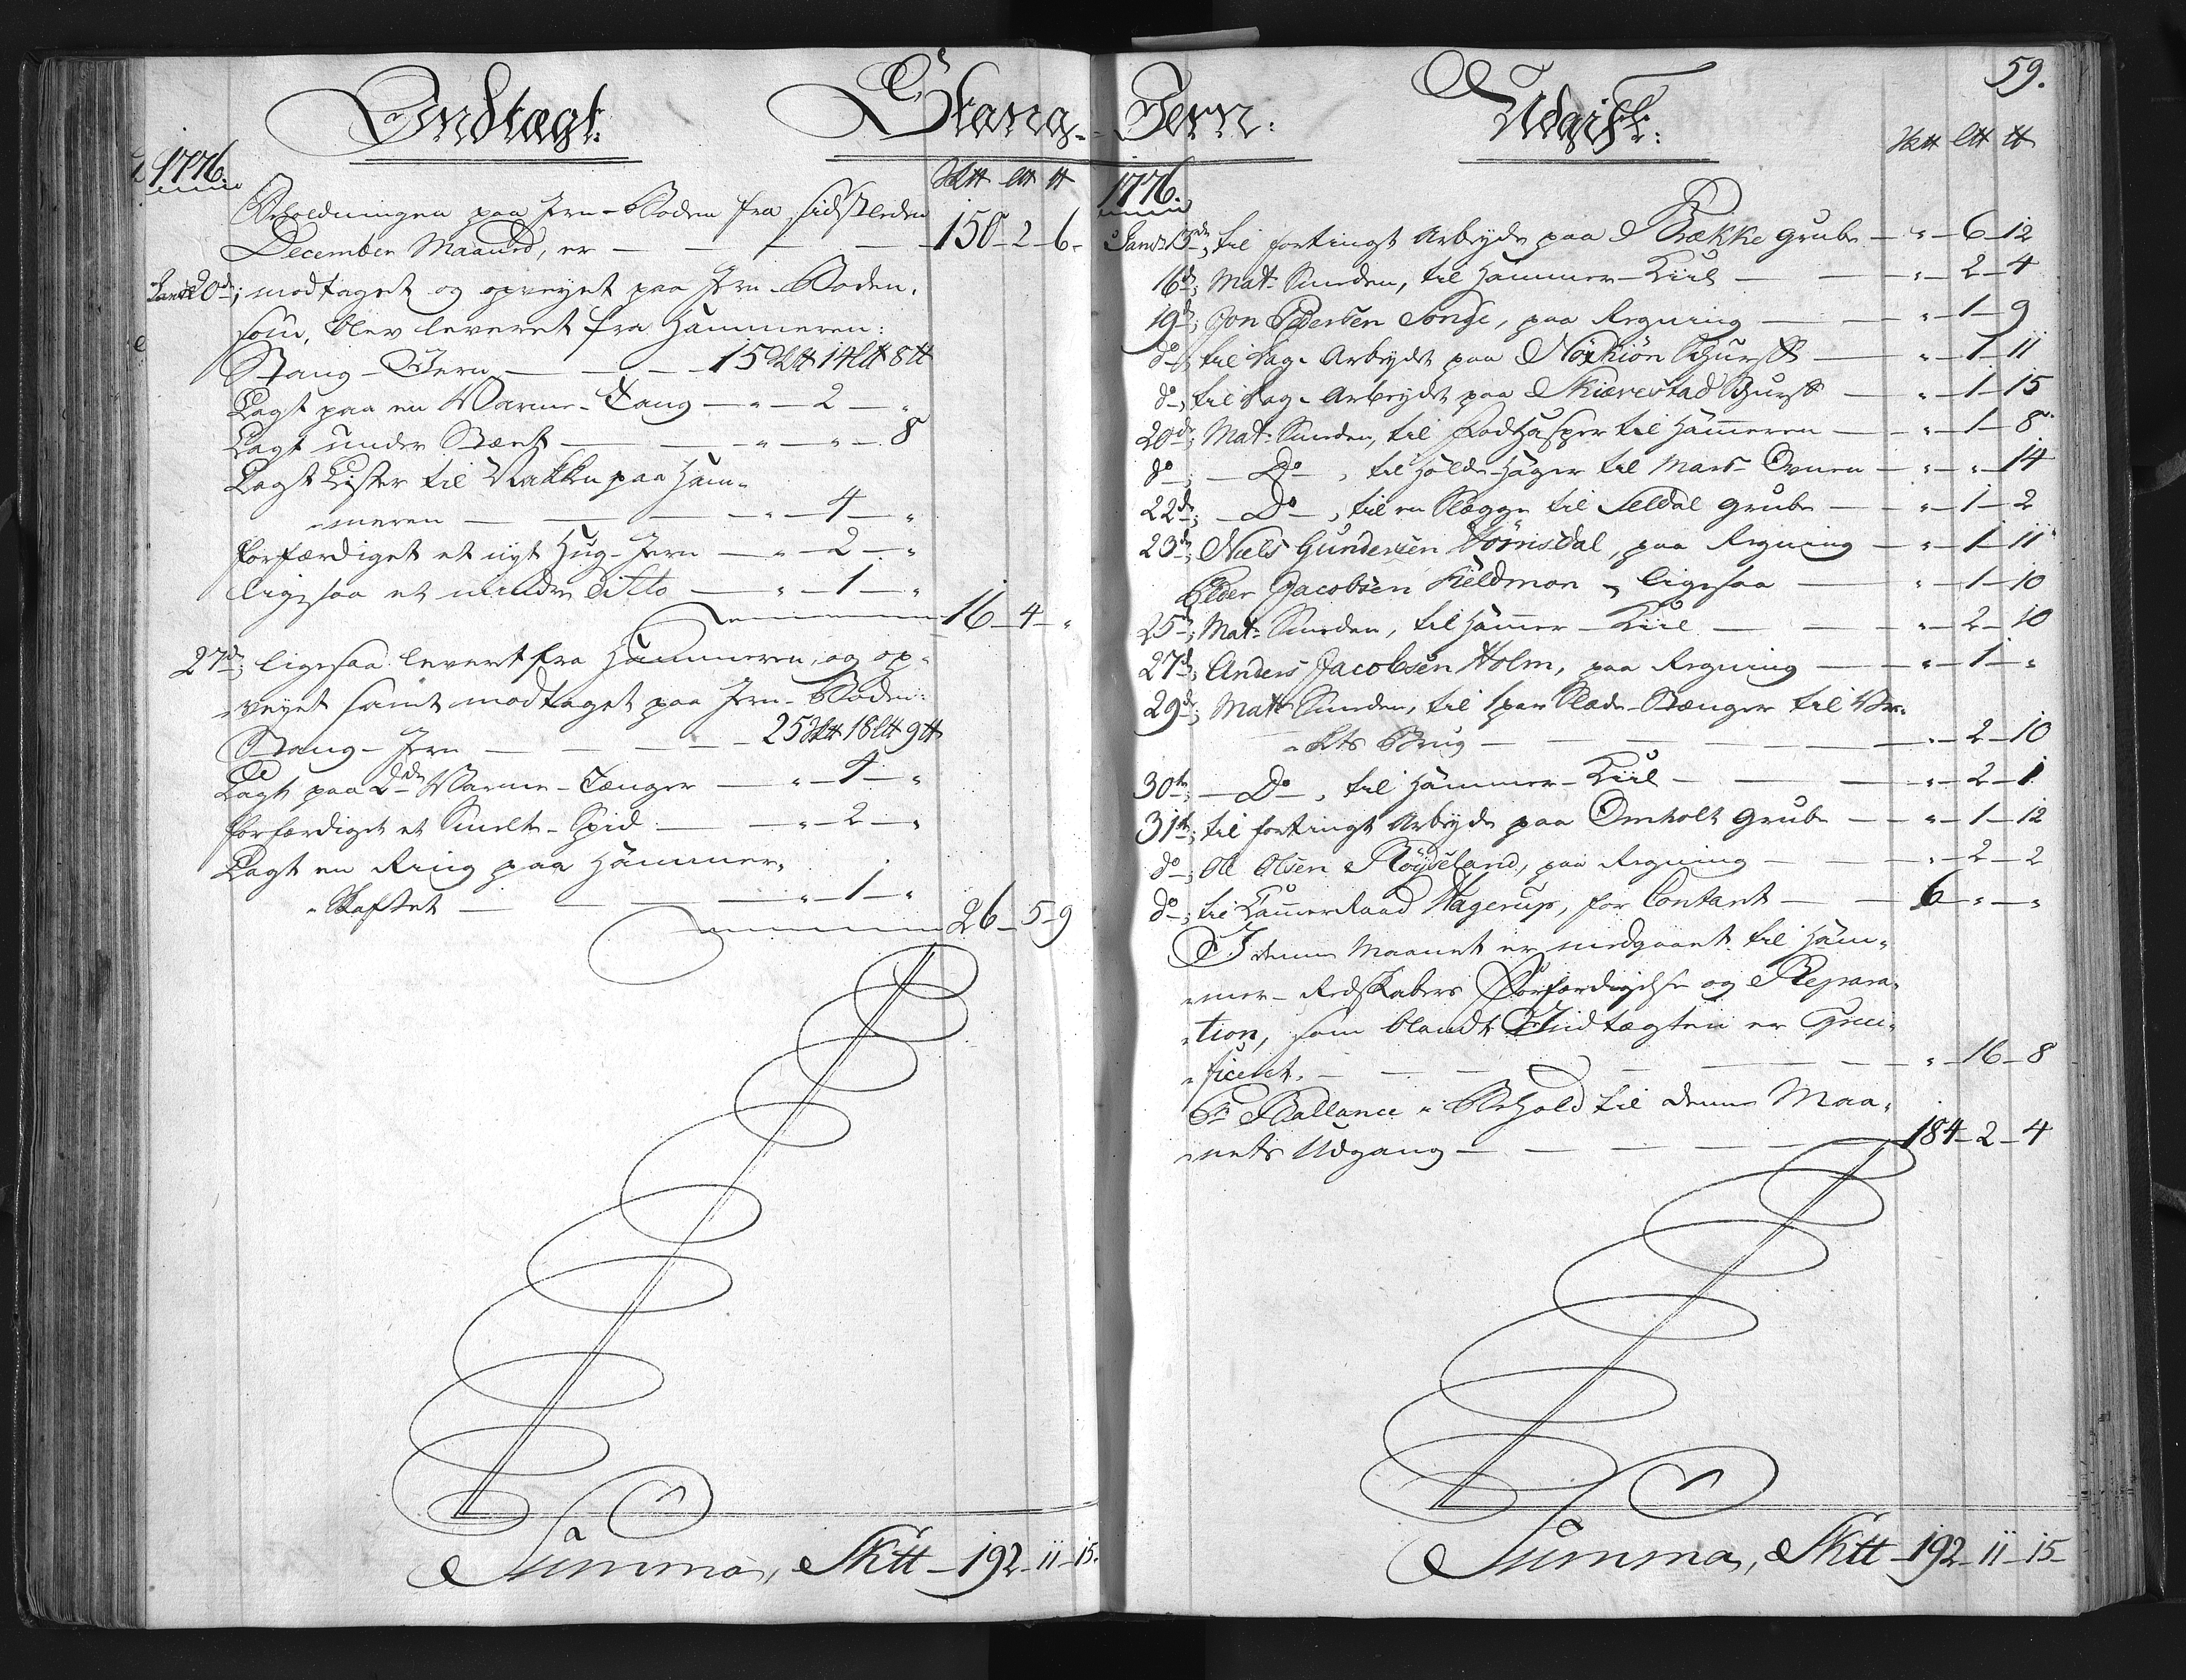 Indtægt. Stang-
1776.
Sktt ltt tt
Beholdningen paa Jern-Boden fra sidstleden
December Maaned, er — — — 150 - 2 - 6 -
Janr. 20de; modtaget og opveyet paa Jern-Boden,
som, blev leveret fra Hammeren:
Stang-Jern — — — 15 Sktt 14 ltt 8 tt
Lagt paa en Varme-Tang — " — 2 — "
Lagt under Stært — — " — " — 8
Lagt Lister til Nakken paa Ham-
-meren — — — " — 4 — "
forfærdiget et nyt Hug-Jern — " — 2 — "
ligesaa et mindre ditto — " — 1 — "
16 - 4 - "
27de; ligesaa levert fra Hammeren, og op-
-veyet samt modtaget paa Jern-Boden:
Stang-Jern — — — 25 Sktt 18 ltt 9 tt
Lagt paa 2de Varme-Tænger — " — 4 — "
forfærdiget et Smelte-Spid — " — 2 — "
Lagt en Ring paa Hammer-
-Skaftet — — — " — 1 — "
26 - 5 - 9
Summa, Sktt - 192 - 11 - 15.
Jern: Udgift: 59.
Sktt ltt tt
1776.
Janr. 15de; til fortingt Arbeyde paa Brække Grube — " — 6 - 12
16de; Mat: Smeden, til Hammer-Kiil — — " — 2 - 4
19de; Jon Pedersen Songe, paa Regning — — " — 1 - 9
do; til Dag-Arbeyde paa Nørkiøn Schurff — " — 1 - 11
do; til Dag-Arbeyde paa Skiærestad Schurff — " — 1 - 15
20de; Mat: Smeden, til LodHasper til Hammeren — " — 1 - 8
do; — Do —, til Holde-Hager til Mars-Ovnen — " — " — 14
22de; — Do —, til en Slægge til Seldal Grube — " — 1 - 2
23de; Niels Gundersen Hømsdal, paa Regning — " — 1 - 11
Peder Jacobsen Kieldmon, ligesaa — " — 1 - 10
25de; Mat: Smeden, til Hammer-Kiil — — " — 2 - 10
27de; Anders Jacobsen Holm, paa Regning — " — 1 - "
29de; Mat: Smeden, til 1 par Slæde-Stænger til Ver-
-kets Brug — — — " — 2 - 10
30te; — Do —, til Hammer-Kiil — — " — 2 - 1
31te; til fortingt Arbeyde paa Omholt Grube — " — 1 - 12
do; Ole Olsen Røyseland, paa Regning — " — 2 - 2
do; til KammerRaad Hagerup, for Contant — 6 - " - "
I denne Maanet er medgaaet til Ham-
-mer-Redskabers Forfærdigelse og Repara-
-tion, som blandt Indtægten er Speci-
-ficeret. — — — " — 16 - 8
Pr Ballance i Behold til denne Maa-
-nets Udgang — — — 184 - 2 - 4
Summa, Sktt - 192 - 11 - 15